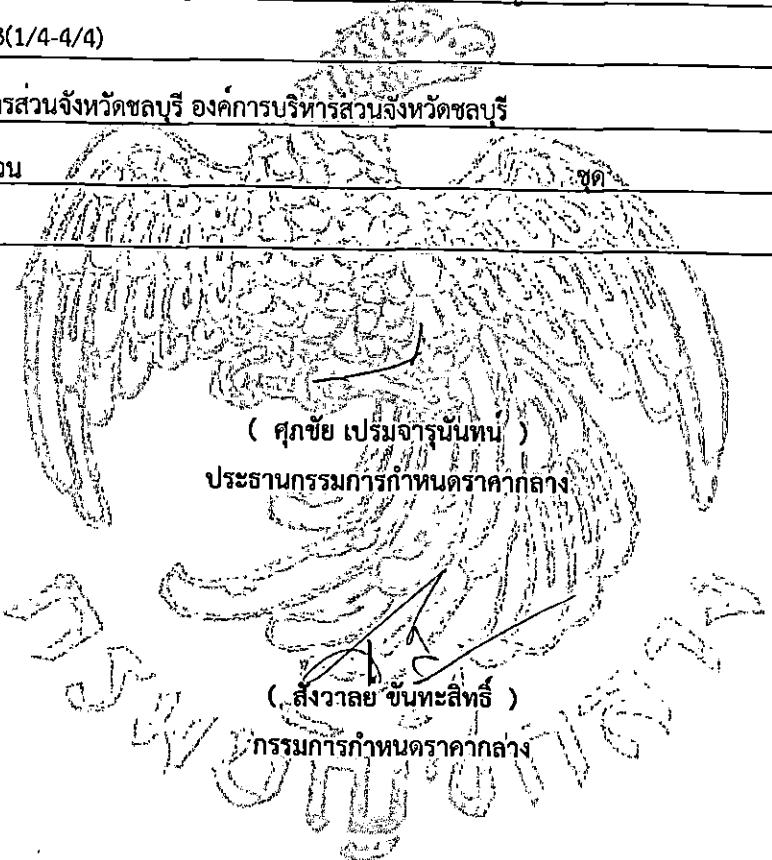 3(1/4-4/4)
รส่วนจังหวัดชลบุรี องค์การบริหารส่วนจังหวัดชลบุรี
วน ชุด
( ศุภชัย เปรมจารุนันทน์ )
ประธานกรรมการกำหนดราคากลาง
( สังวาลย์ ขันทะสิทธิ์ )
กรรมการกำหนดราคากลาง